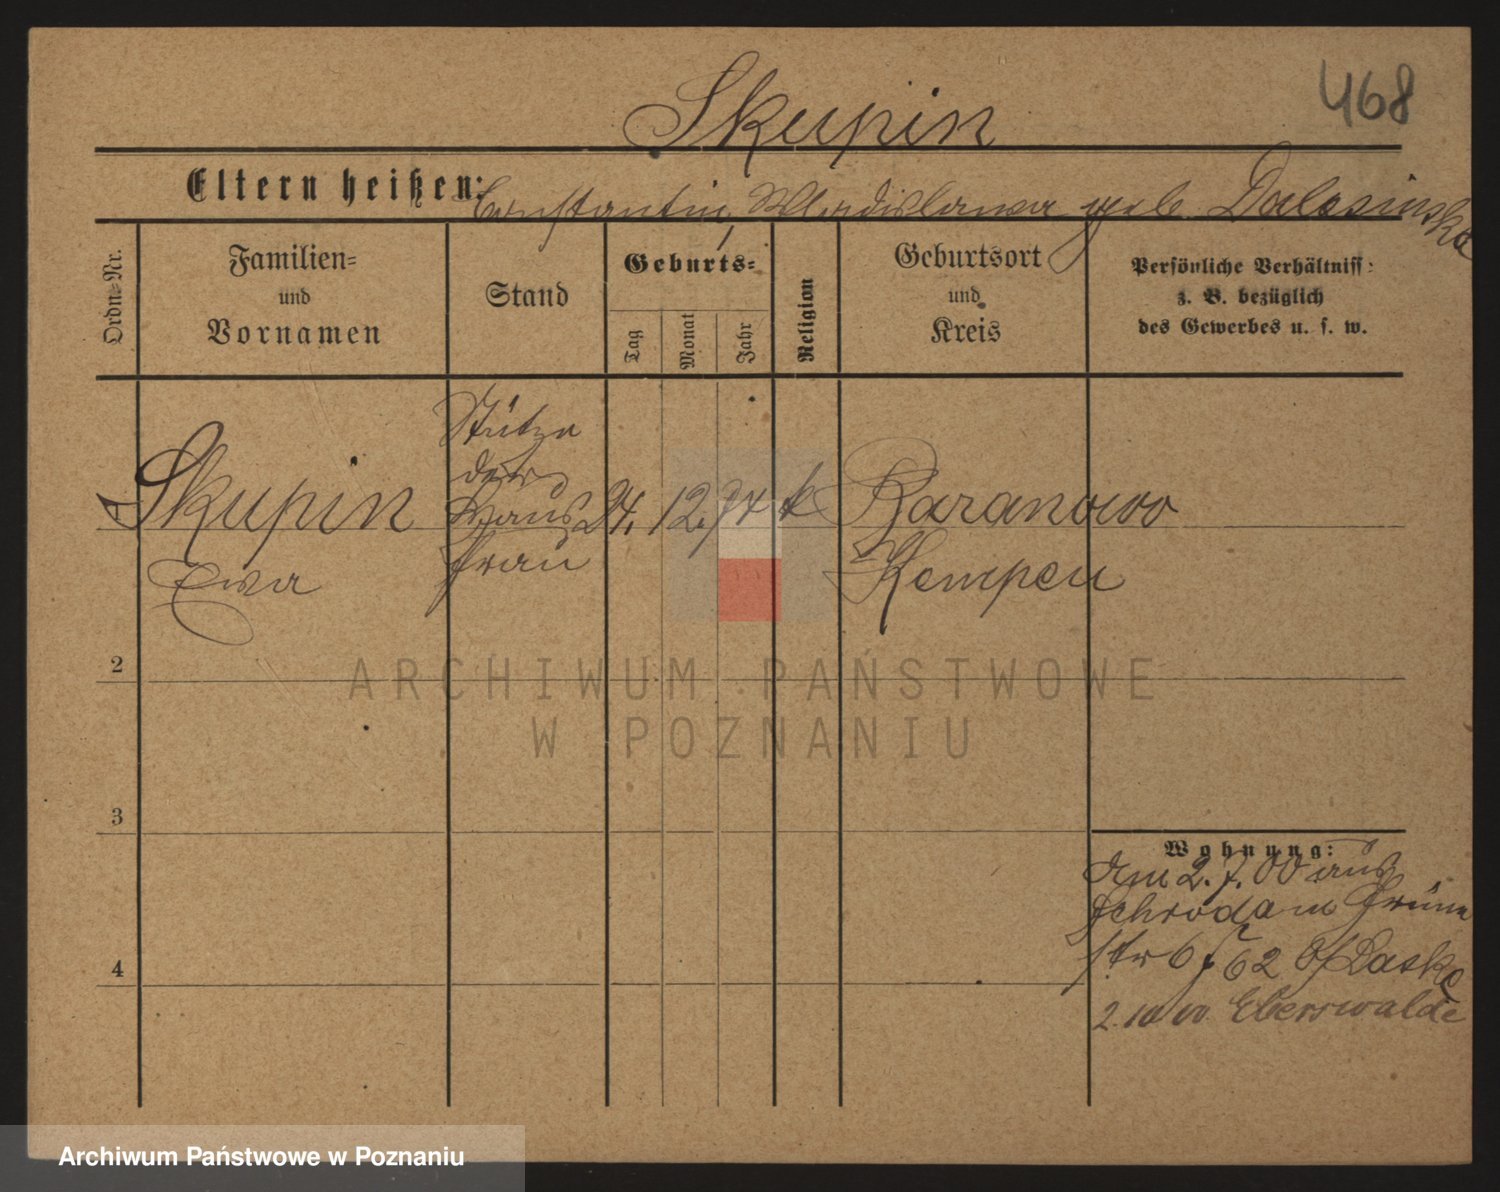 Skupin
468
Eltern heißen: Constantin, Wladislawa geb. Dalasinska
Ordn.-Nr.
Familien-
und
Vornamen
Stand
Geburts-
Tag
Monat
Jahr
Religion
Geburtsort
und
Kreis
Persönliche Verhältniss:
z. B. bezüglich
des Gewerbes u. s. w.
Skupin
Ewa
Stütze
der
Hausfrau
24. 12. 74 k
Baranowo
Kempen
2
3
4
Wohnung:
Am 2. 7. 00 aus
Schroda n
str 6 62
2. 10 00 Eberswalde
ARCHIWUM PAŃSTWOWE
W POZNANIU
Archiwum Państwowe w Poznaniu